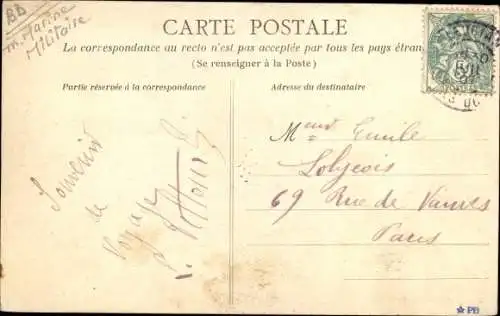 BB
m. Marine
Militaire
CARTE POSTALE
La correspondance au recto n'est pas acceptée par tous les pays étran
(Se renseigner à la Poste)
Partie réservée à la correspondance
Adresse du destinataire
Souvenir
de
Voyage
Emile
69 Rue de Vanves
Paris
PB